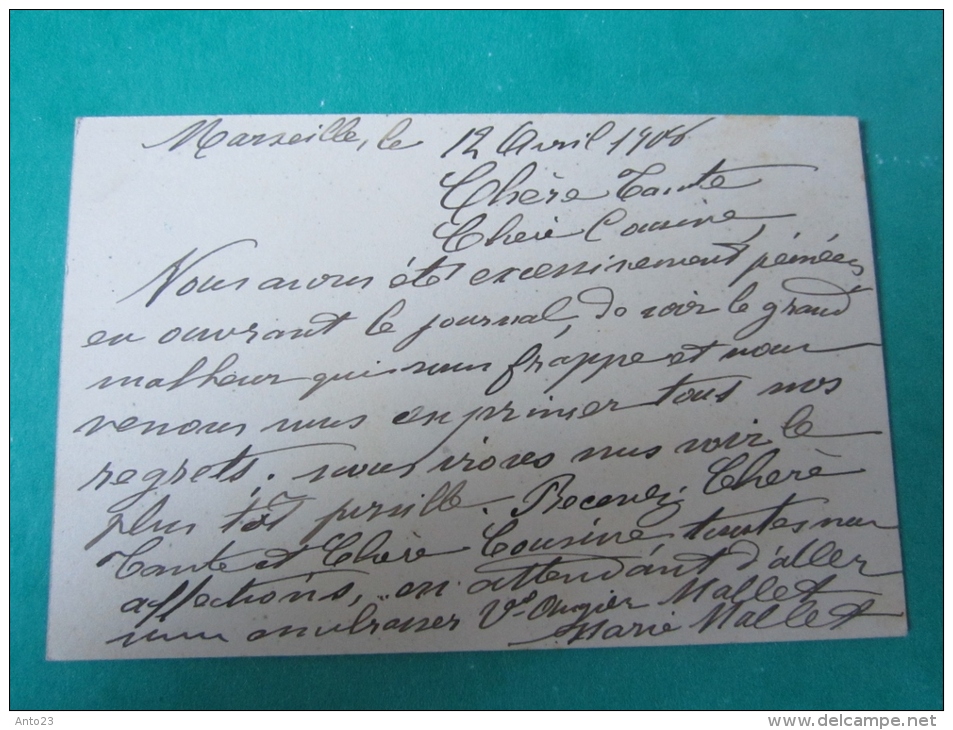 Marseille, le 12 Avril 1906
Chère Tante
Chère Cousine,
Nous avons été excessivement peinées
en ouvrant le journal, de voir le grand
malheur qui vous frappe et nous
venons vous exprimer tous nos
regrets, nous irons vous voir le
plus tôt possible. Recevez Chère
Tante et Chère Cousine toutes nos
affections, en attendant d'aller
vous embrasser Vve Augier Mallet
Marie Mallet
Anto23
www.delcampe.net